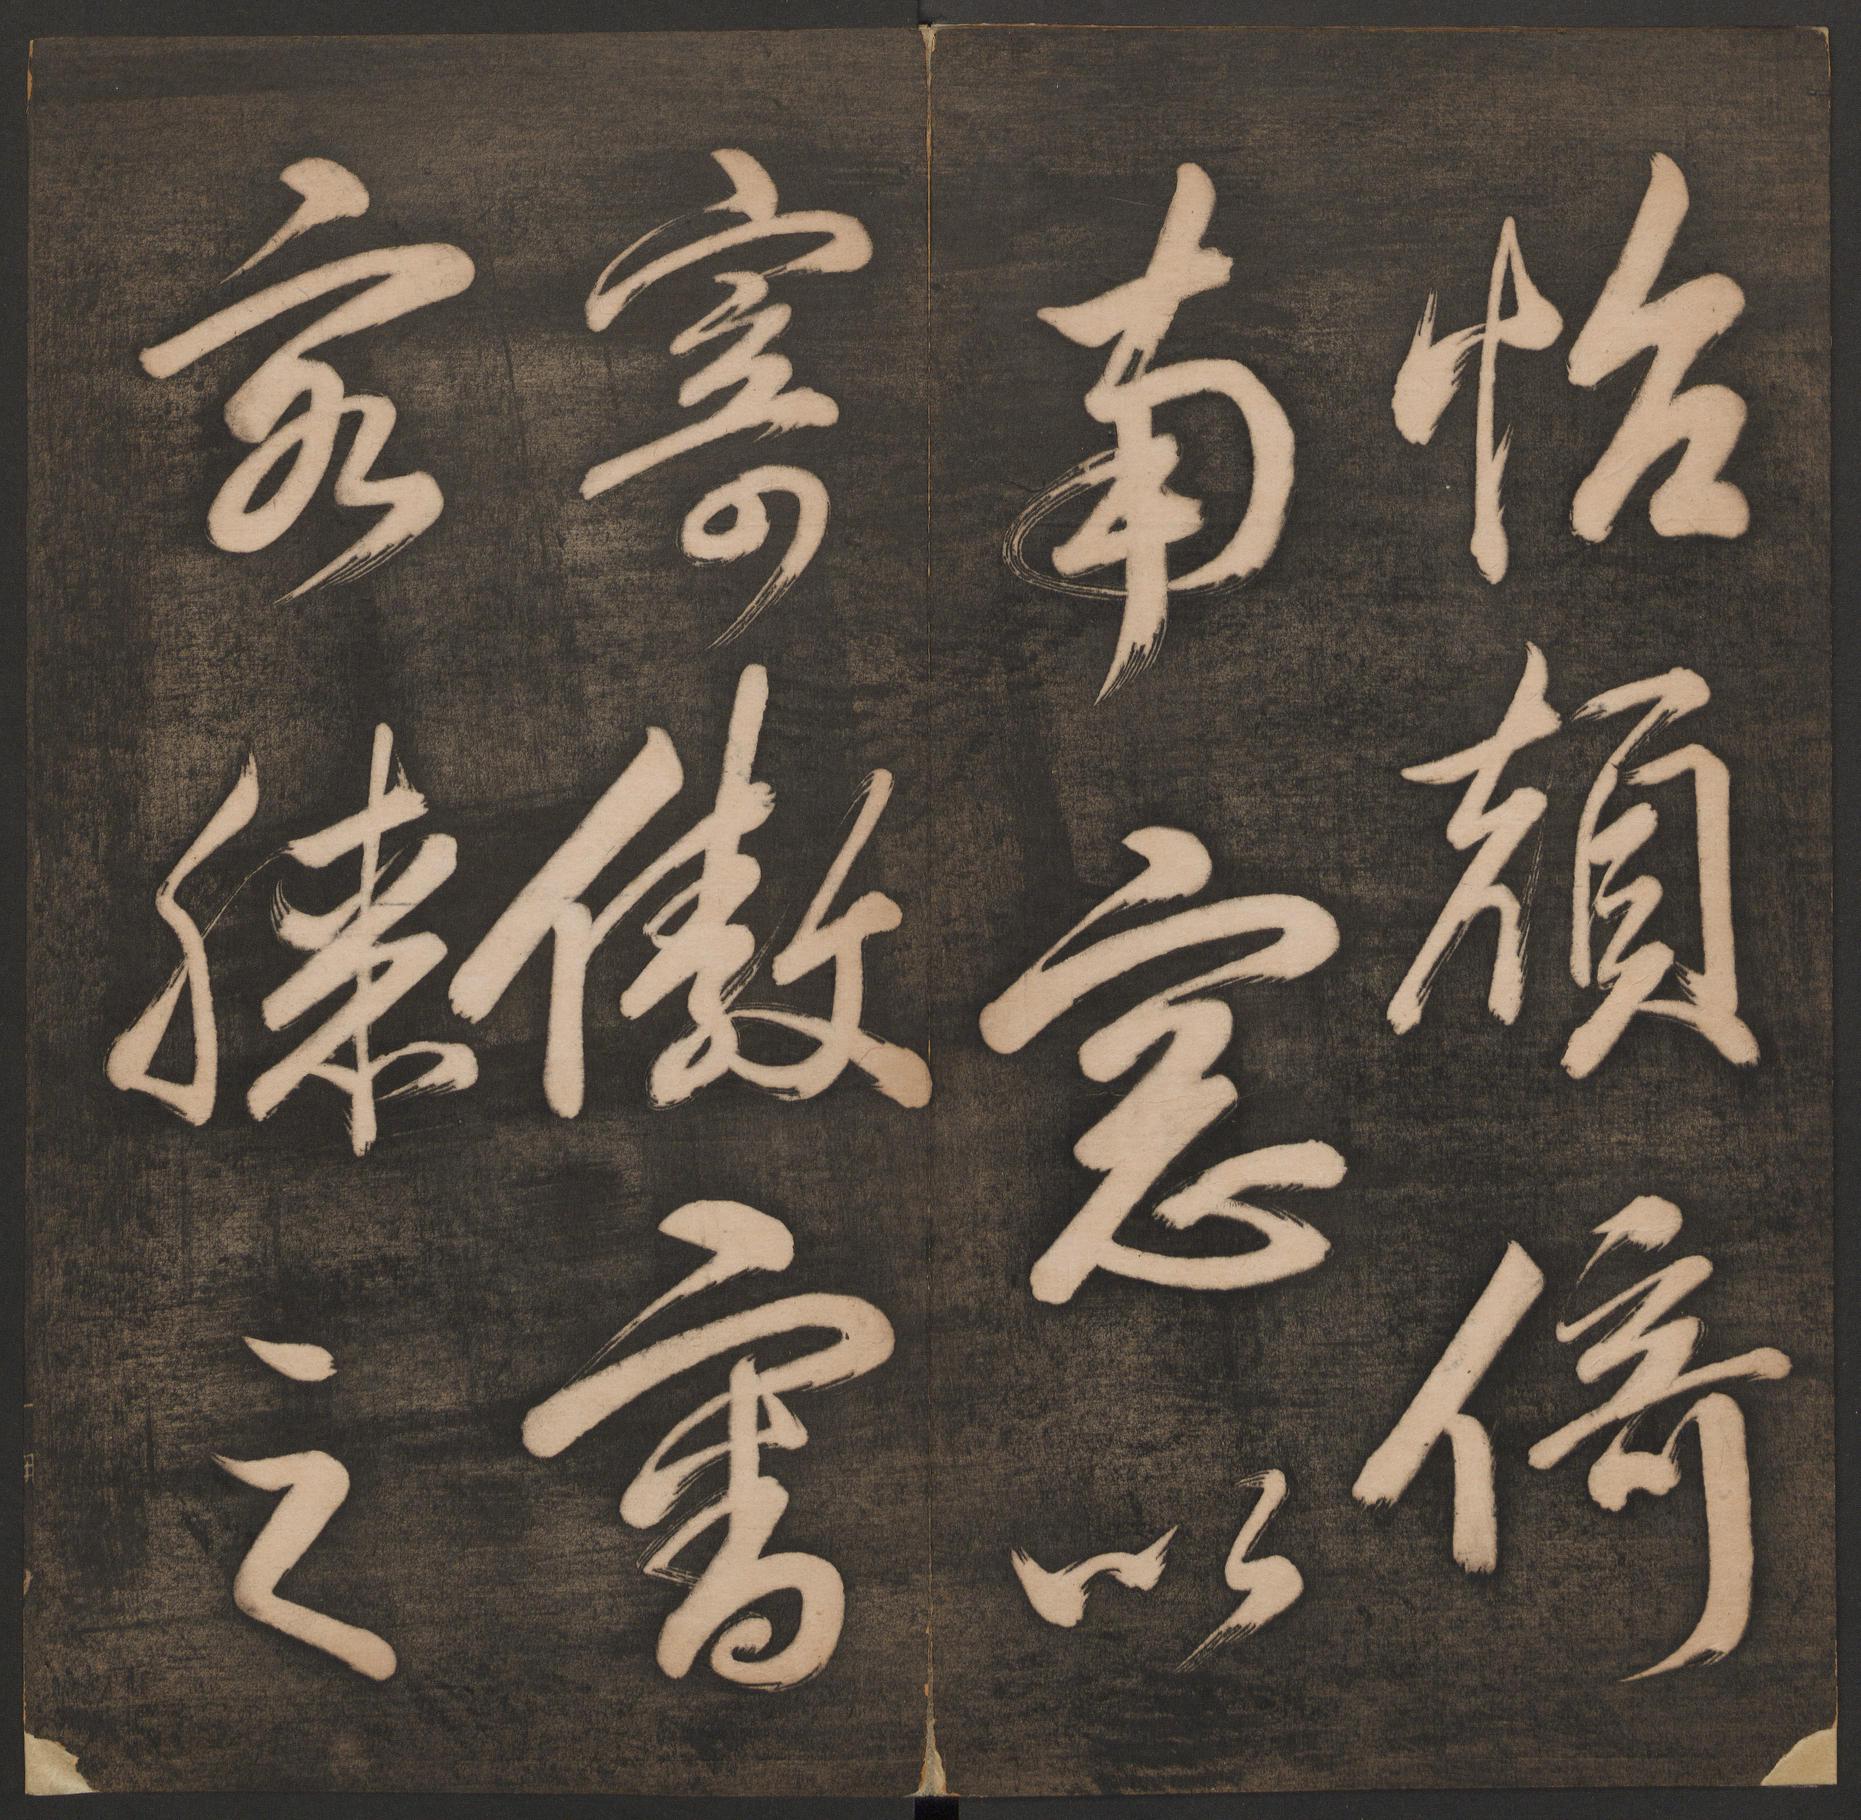 怡顔倚
南窓以
寄傲審
容膝之